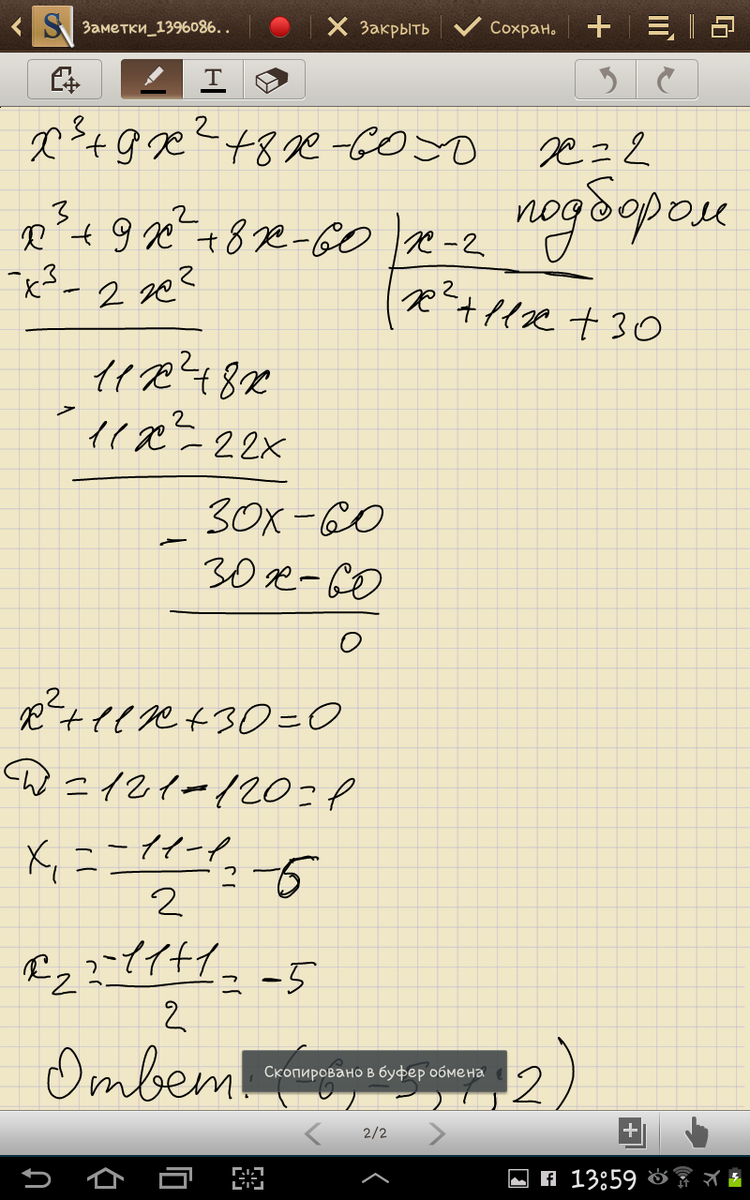 Заметки_1396086.. Закрыть Сохран.
x³+9x²+8x-60=0 x=2
подбором
x³+9x²+8x-60 | x-2
-x³-2x² x²+11x+30
11x²+8x
- 11x²-22x
30x-60
- 30x-60
0
x²+11x+30=0
D=121-120=1
x₁=(-11-1)/2=-6
x₂=(-11+1)/2=-5
Ответ: (-6; -5; 1; 2)
Скопировано в буфер обмена
2/2
13:59